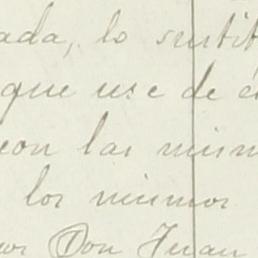 ada, lo sentit
que use de é
con las mism
los mismos
Don Juan